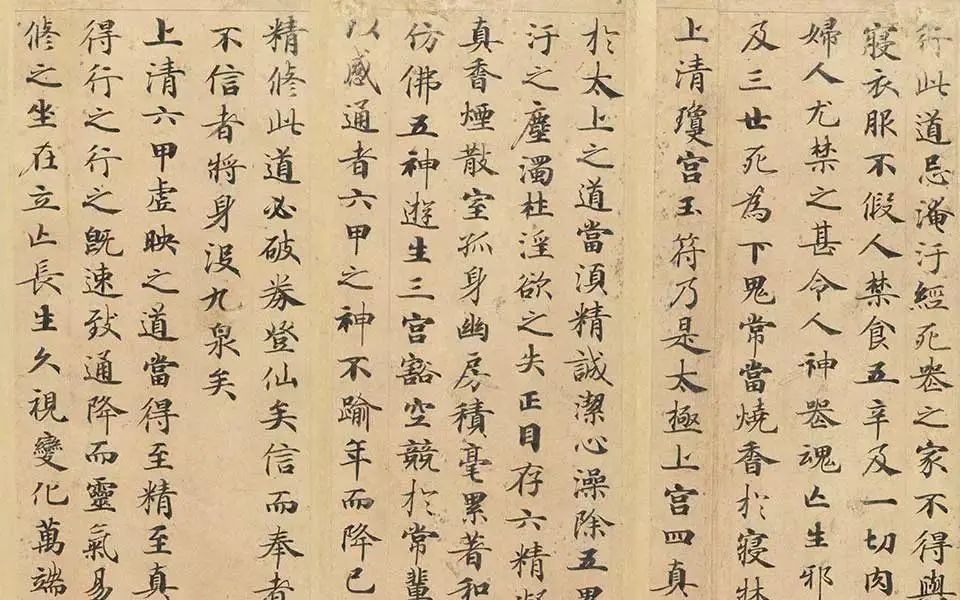 行此道忌淹汙經死喪之家不得與
寢衣服不假人禁食五辛及一切肉
婦人尤禁之甚令人神喪魂亡生邪
及三世死為下鬼常當燒香於寢牀
上清瓊宮玉符乃是太極上宮四真
於太上之道當須精誠潔心澡除五累
汙之塵濁杜淫欲之失正目存六精凝
真香煙散室孤身幽房積毫累著和
仿佛五神遊生三宮豁空競於常輩
以感通者六甲之神不踰年而降已
精修此道必破券登仙矣信而奉者
不信者將身沒九泉矣
上清六甲虛映之道當得至精至真
得行之行之既速致通降而靈氣易
修之坐在立亡長生久視變化萬端